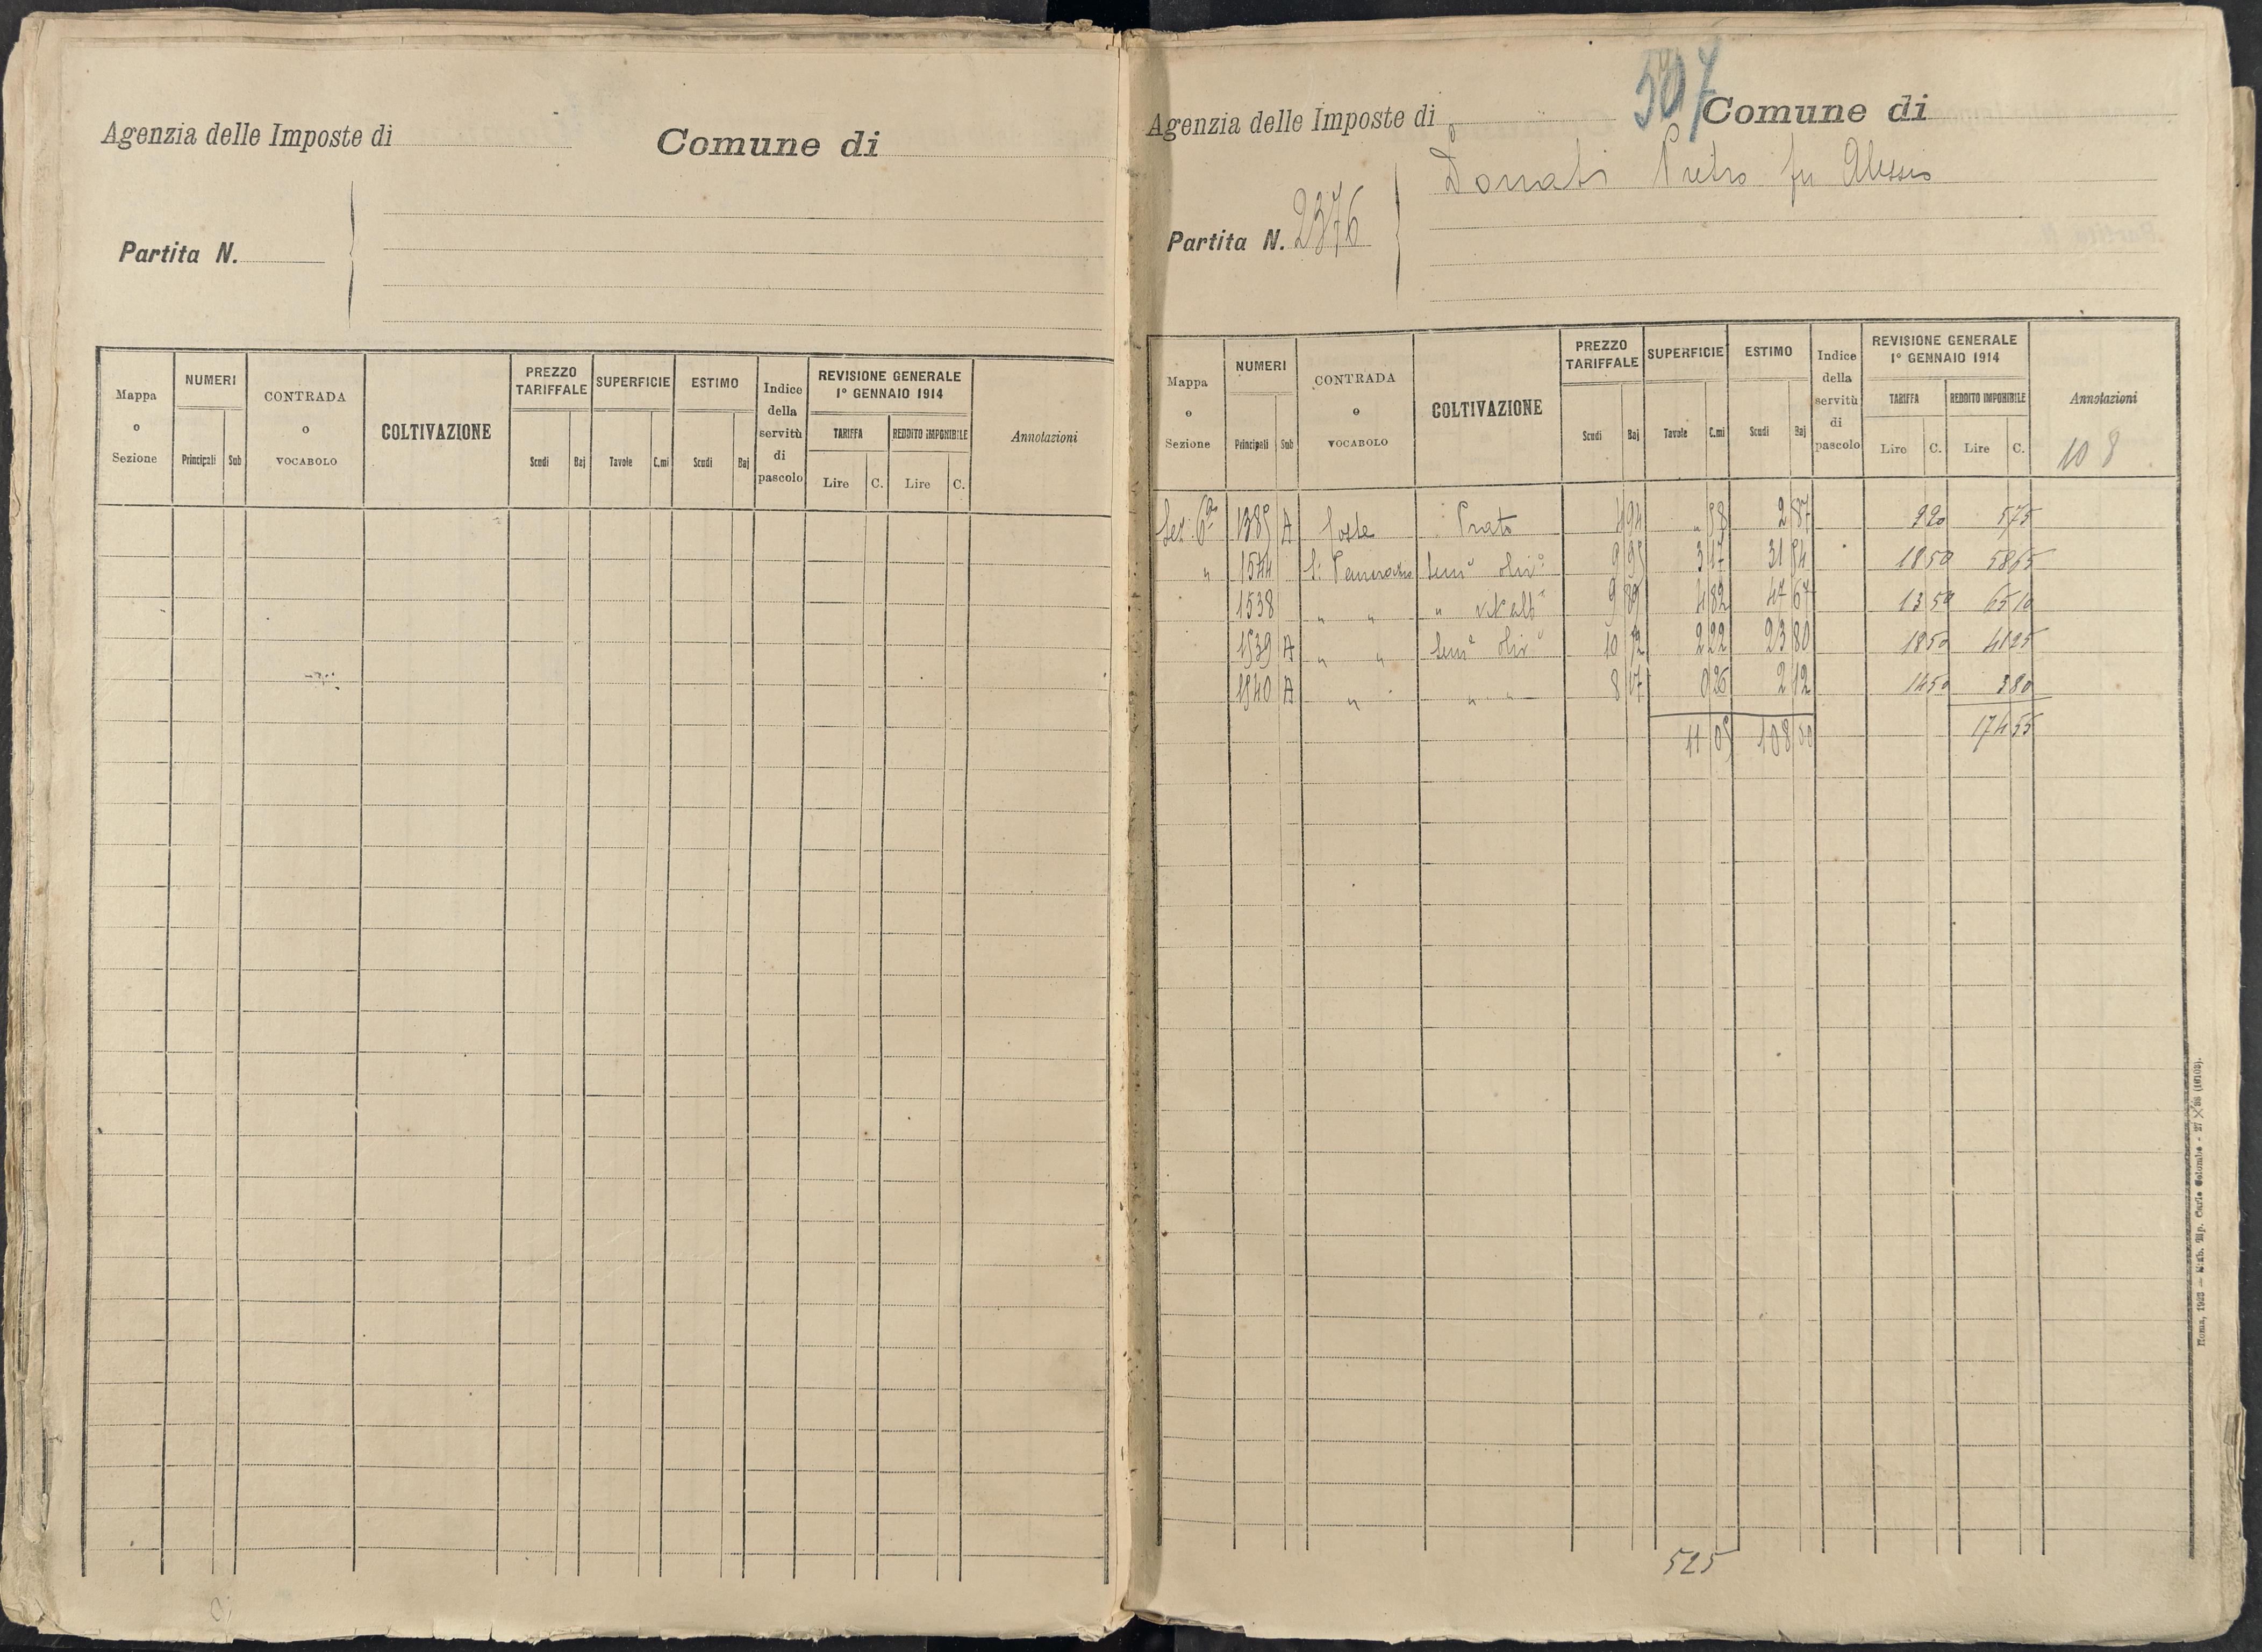 Agenzia delle Imposte di
Comune di
Partita N.
Mappa o Sezione
NUMERI
Principali Sub
CONTRADA o VOCABOLO
COLTIVAZIONE
PREZZO TARIFFALE
Scudi Baj
SUPERFICIE
Tavole C.mi
ESTIMO
Scudi Baj
Indice della servitù di pascolo
REVISIONE GENERALE
1° GENNAIO 1914
TARIFFA
Lire C.
REDDITO IMPONIBILE
Lire C.
Annotazioni
507
Agenzia delle Imposte di
Comune di
Donati Pietro fu Alessio
Partita N. 2376
Mappa o Sezione
NUMERI
Principali Sub
CONTRADA o VOCABOLO
COLTIVAZIONE
PREZZO TARIFFALE
Scudi Baj
SUPERFICIE
Tavole C.mi
ESTIMO
Scudi Baj
Indice della servitù di pascolo
REVISIONE GENERALE
1° GENNAIO 1914
TARIFFA
Lire C.
REDDITO IMPONIBILE
Lire C.
Annotazioni
108
Sez. 6a 1385 A Prato 4 94 " 58 2 87 9 90 5 75
" 1544 S. Pancrazio Semo olivo 3 17 31 54 18 50 58 65
1538 " " " 9 89 4 82 47 67 13 50 65 10
1539 A " " Semo olivo 10 72 2 22 23 80 18 50 41 25
1540 A " " " 8 17 0 26 2 12 14 50 3 80
11 05 108 00 174 55
525
Roma, 1923 — Stab. Tip. Carlo Colombo - 27 × 38